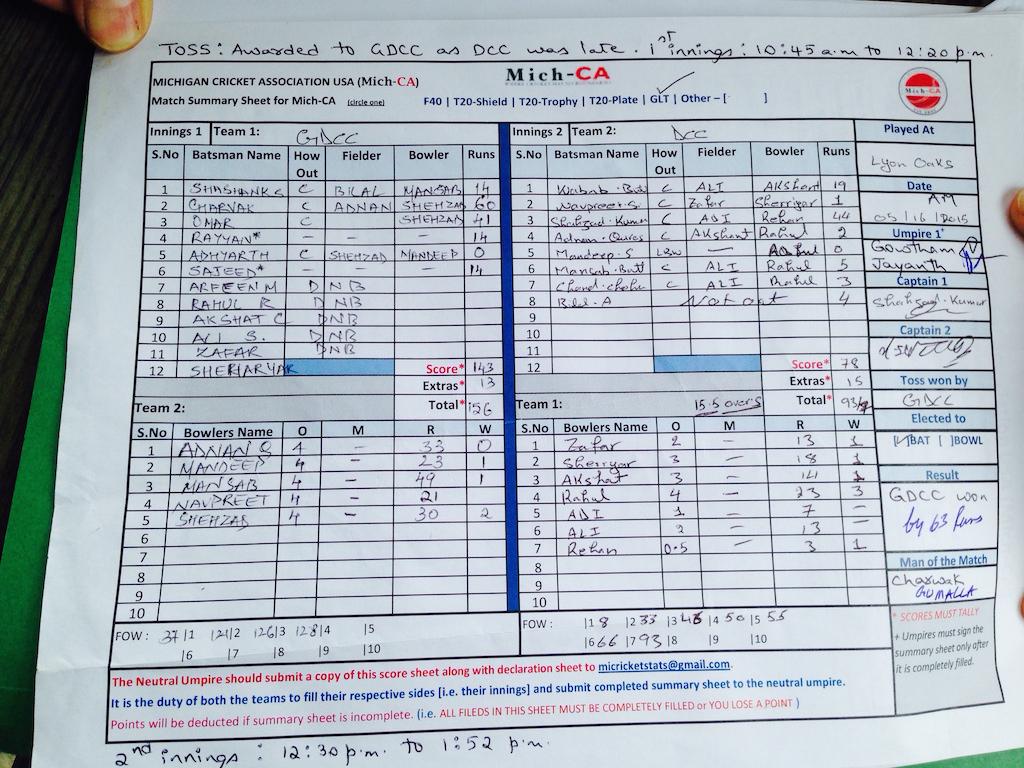 TOSS: Awarded to GDCC as DCC was late. 1st innings: 10:45 a.m to 12:20 p.m.
MICHIGAN CRICKET ASSOCIATION USA (Mich-CA)
Mich-CA
Match Summary Sheet for Mich-CA (circle one) F40 | T20-Shield | T20-Trophy | T20-Plate | GLT | Other – [ ]
Mich-CA
Innings 1 Team 1: GDCC
S.No Batsman Name How Out Fielder Bowler Runs
1 SHASHANK S C BILAL MANSAB 14
2 CHARVAK C ADNAN SHEHZAD 60
3 OMAR C SHEHZAD 41
4 RAYYAN* – – – 14
5 ADHYARTH C SHEHZAD MANDEEP 0
6 SAJEED* – – – 14
7 ARFEEN M DNB
8 RAHUL R DNB
9 AKSHAT C DNB
10 ALI S. DNB
11 ZAFAR DNB
12 SHERIARYAR
Score* 143
Extras* 13
Total* 156
Team 2:
S.No Bowlers Name O M R W
1 ADNAN Q 4 – 33 0
2 MANDEEP 4 – 23 1
3 MANSAB 4 – 49 1
4 NAVPREET 4 – 21
5 SHEHZAD 4 – 30 2
6
7
8
9
10
FOW: 37/1 121/2 126/3 128/4 |5
|6 |7 |8 |9 |10
Innings 2 Team 2: DCC
S.No Batsman Name How Out Fielder Bowler Runs
1 Wahab.Butt C ALI Akshant 19
2 Navpreet.S C Zafar Sherriyar 1
3 Shahzad.Kumar C ADI Rehan 44
4 Adnan.Qures C Akshant Rahul 2
5 Mandeep.S LBW — Rahul 0
6 Mansab.Butt C ALI Rahul 5
7 C ALI Rahul 3
8 Bilal.A Not out 4
9
10
11
12
Score* 78
Extras* 15
15.5 overs Total* 93/7
Team 1:
S.No Bowlers Name O M R W
1 Zafar 2 – 13 1
2 Sherriyar 3 – 18 1
3 Akshat 3 – 14 1
4 Rahul 4 – 23 3
5 ADI 1 – 7 –
6 ALI 2 – 13 –
7 Rehan 0.5 – 3 1
8
9
10
FOW: |1 8 |2 33 |3 |4 50 |5 55
|6 66 |7 93 |8 |9 |10
Played At
Lyon Oaks
Date
AM
05/16/2015
Umpire 1*
Gowtham
Jayanth
Captain 1
Shahzad.Kumar
Captain 2
Toss won by
GDCC
Elected to
[✓]BAT [ ]BOWL
Result
GDCC won
by 63 Runs
Man of the Match
Charwak
GUMALLA
* SCORES MUST TALLY
+ Umpires must sign the
summary sheet only after
it is completely filled.
The Neutral Umpire should submit a copy of this score sheet along with declaration sheet to micricketstats@gmail.com.
It is the duty of both the teams to fill their respective sides [i.e. their innings] and submit completed summary sheet to the neutral umpire.
Points will be deducted if summary sheet is incomplete. (i.e. ALL FILEDS IN THIS SHEET MUST BE COMPLETELY FILLED or YOU LOSE A POINT )
2nd innings: 12:30 p.m. to 1:52 p.m.